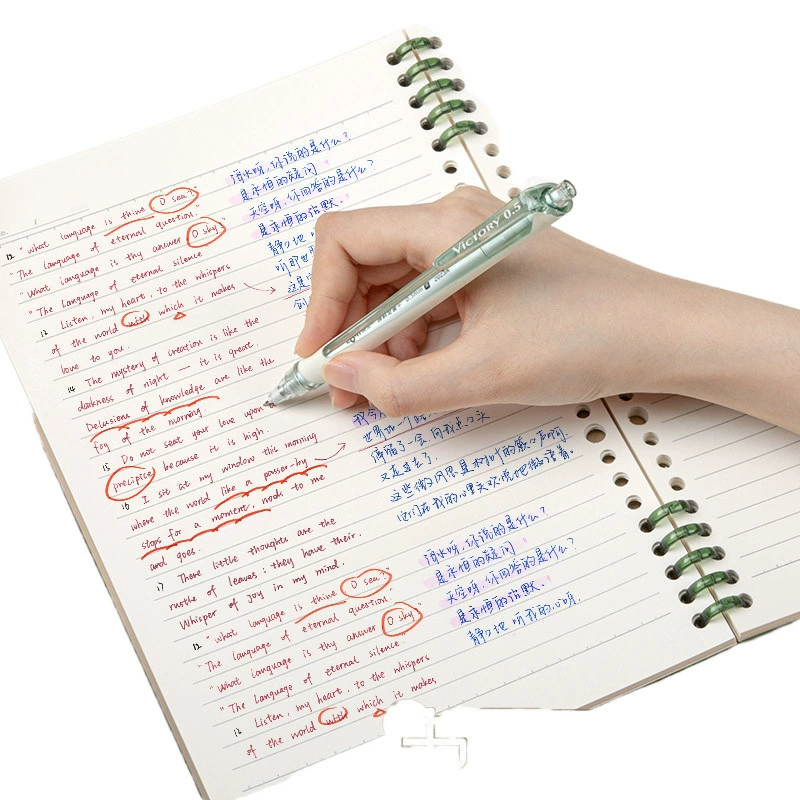 12 "What language is thine O sea?"
"The language of eternal question."
"What language is thy answer O sky
"The Language of eternal silence
13 Listen, my heart, to the whispers
of the world with which it makes
love to you.
14 The mystery of creation is like the
darkness of night — it is great.
Delusions of knowledge are like the
fog of the morning
15 Do not seat your love upon a
precipice because it is high.
16 I sit at my window this morning
where the world like a passer-by
stops for a moment, nods to me
and goes.
17 There little thoughts are the
rustle of leaves; they have their.
Whisper of joy in my mind.
12 "What language is thine O sea?
"The language of eternal question.
"What language is thy answer O sky
"The Language of eternal silence.
13 Listen, my heart, to the whispers
of the world with which it makes
海水呀,你说的是什么?
是永恒的疑问
天空呀,你回答的是什么?
是永恒的沉默.
静
听那世
这是
创
世界如一个
停留了一会,向我点
又走过去了.
这些微
海水呀,你说的是什么?
是永恒的疑问
天空呀,你回答的是什么?
是永恒的沉默.
静 地 听我的心呀.
VICTORY 0.5